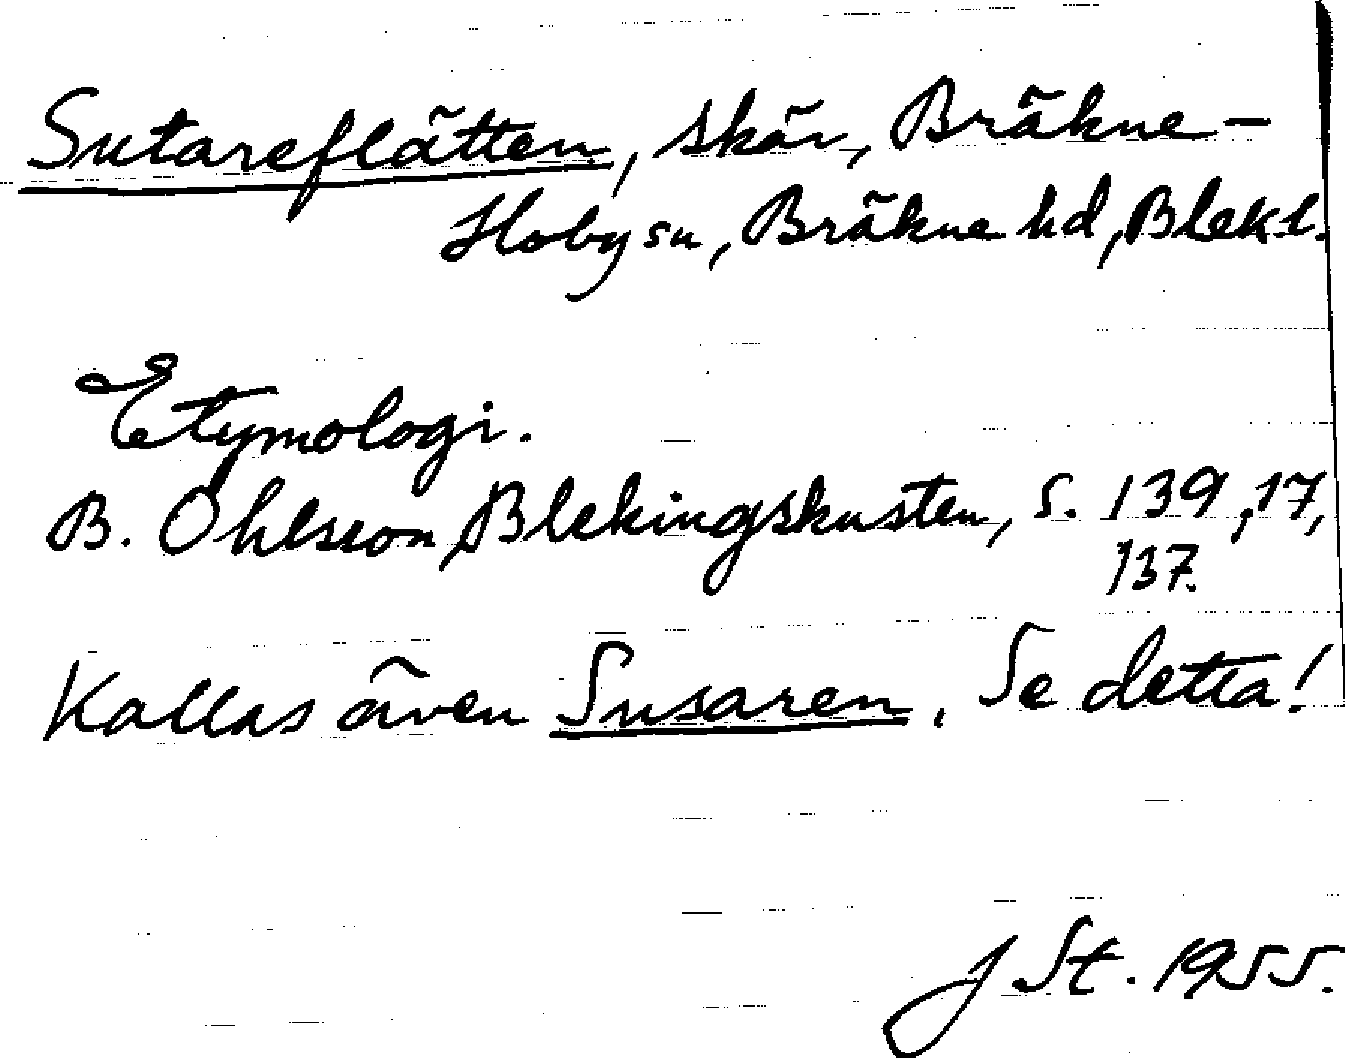 Sutareflätten, skär, Bräkne-
Hoby sn, Bräkne hd, Blekl.
Etymologi.
B. Ohlsson, Blekingskusten, s. 139, 17,
137.
Kallas även Susaren. Se detta!
J. St. 1955.